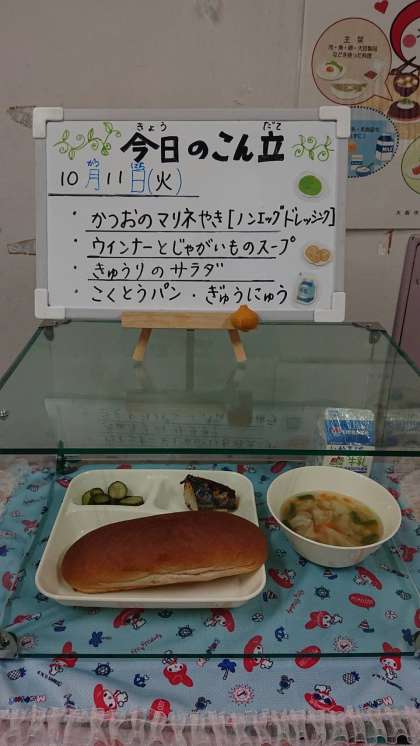 きょう だて
今日のこん立
がつ にち か
10月11日(火)
・かつおのマリネやき[ノンエッグドレッシング]
・ウインナーとじゃがいものスープ
・きゅうりのサラダ
・こくとうパン・ぎゅうにゅう
主菜